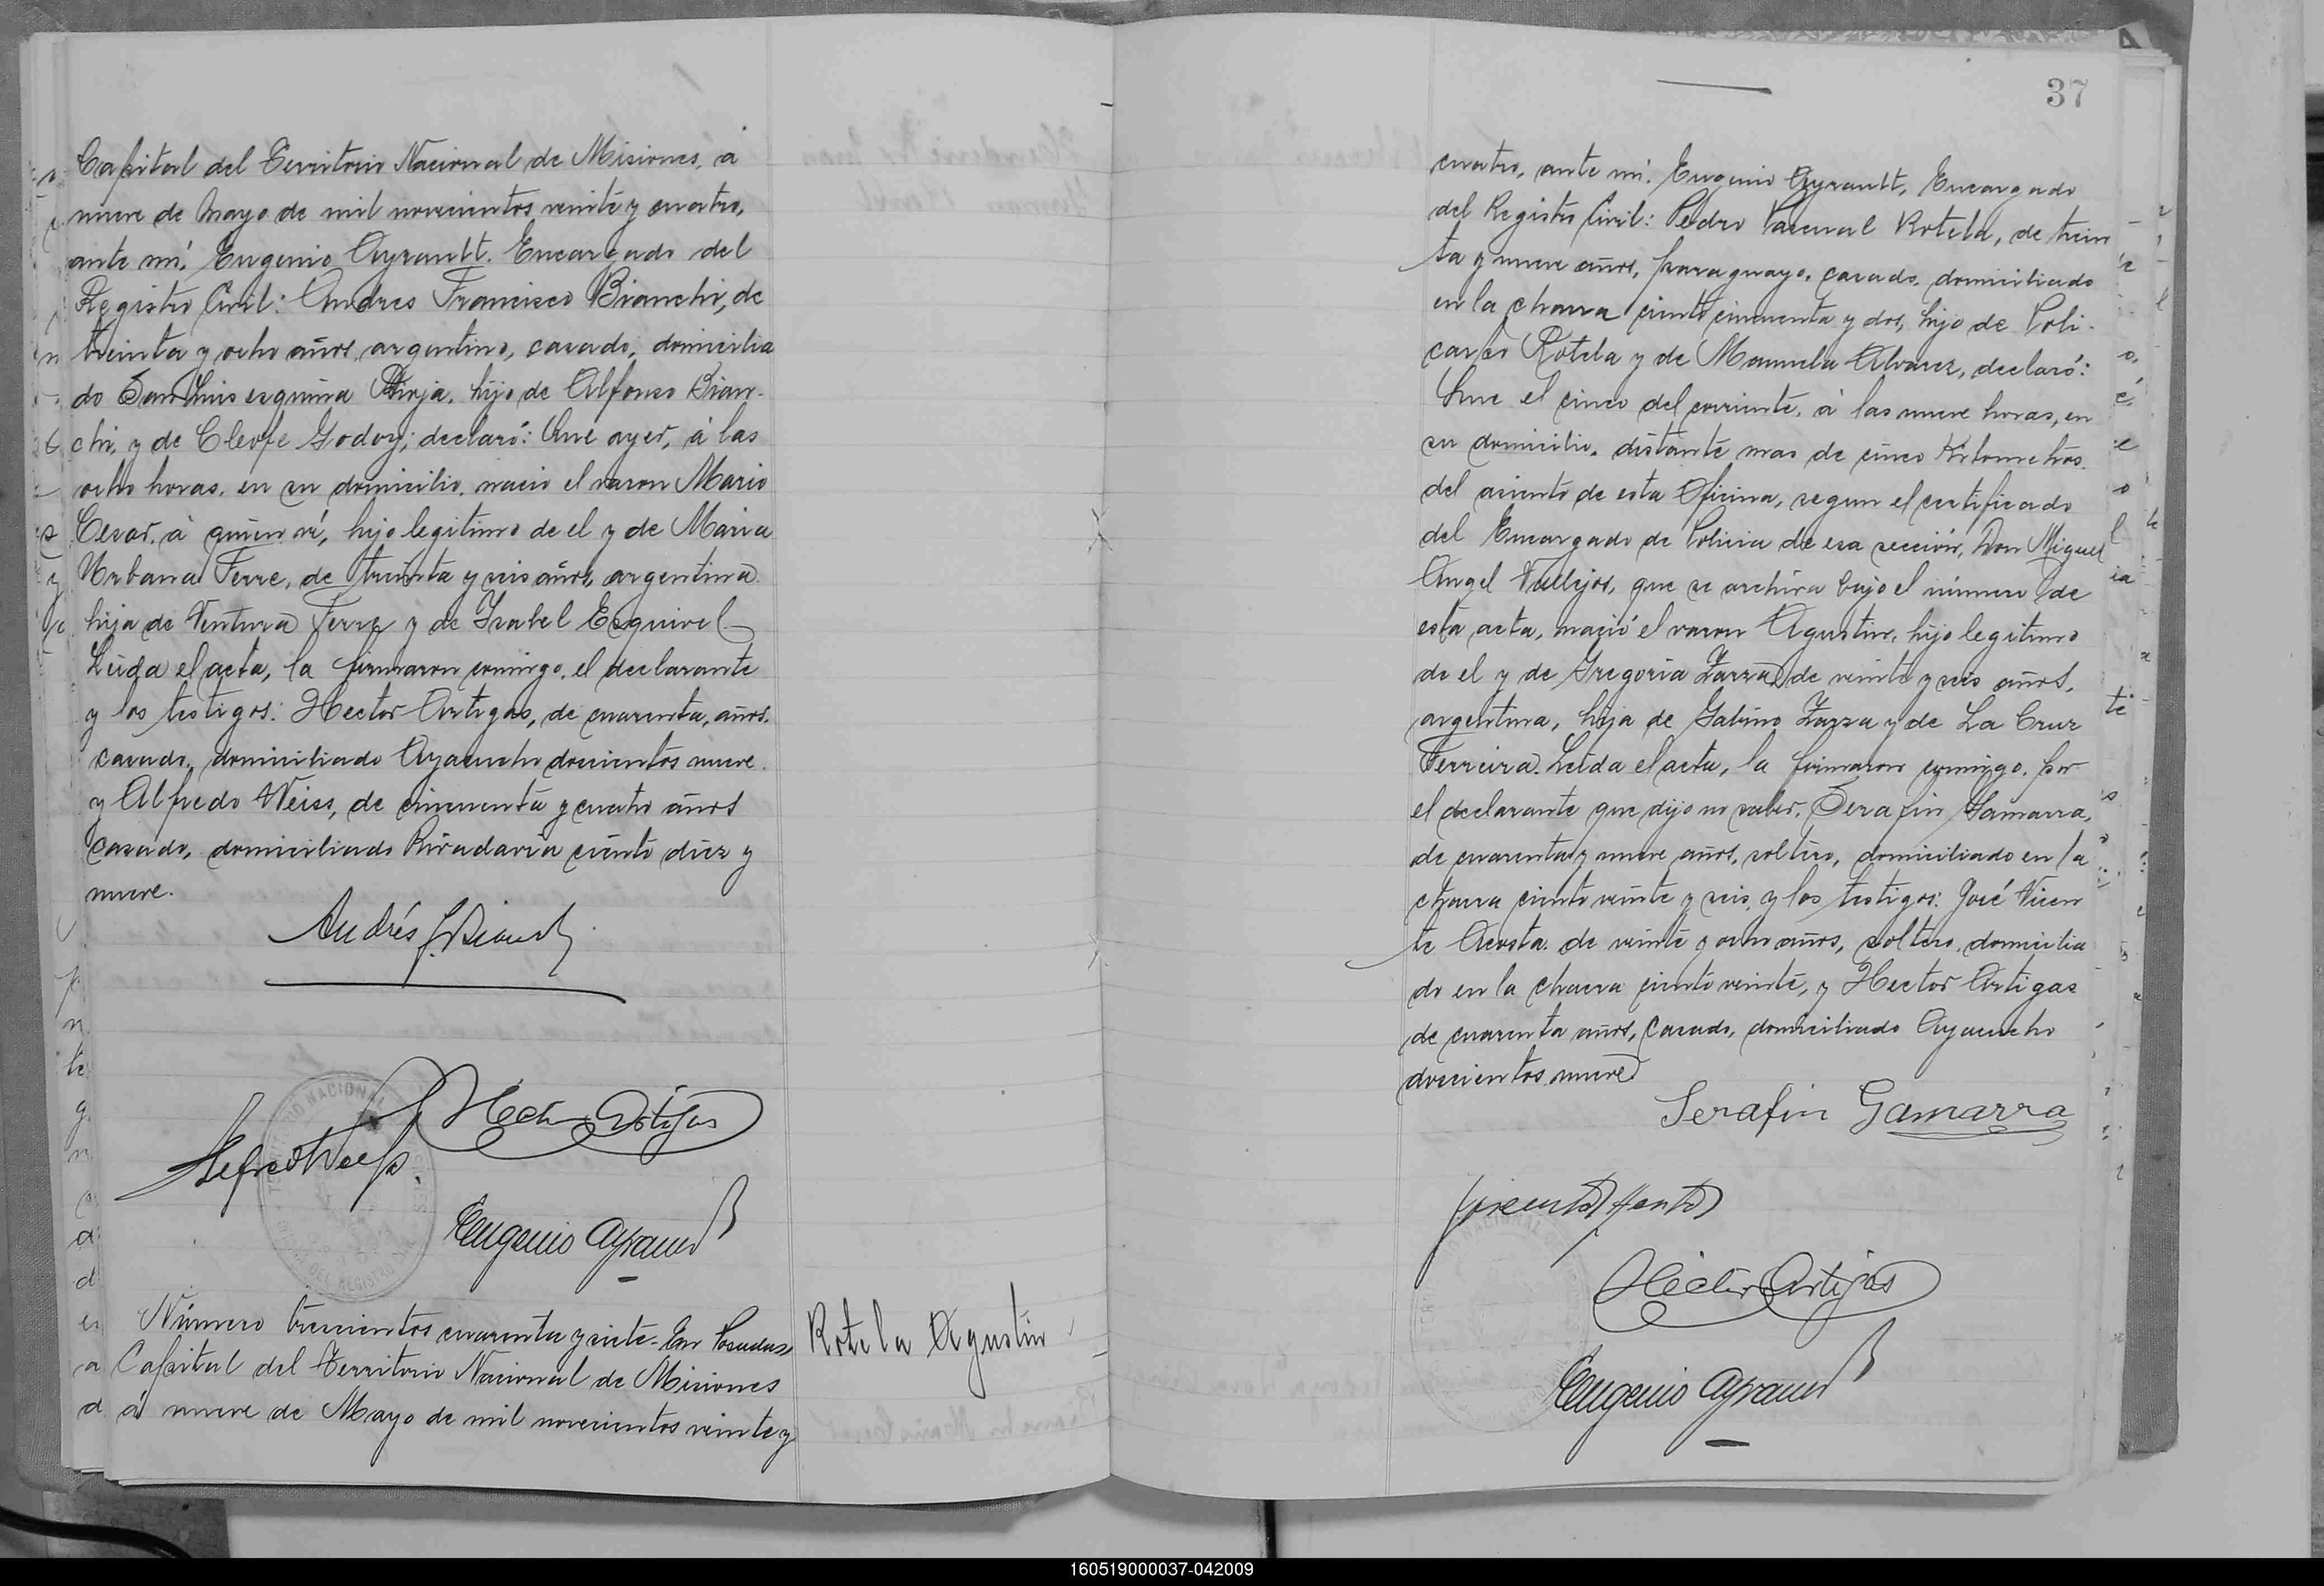 Capital del Territorio Nacional de Misiones, á
nueve de Mayo de mil novecientos veinte y cuatro,
ante mí: Eugenio Ayrault. Encargado del
Registro Civil: Andres Francisco Bianchi, de
treinta y ocho años, argentino, casado, domicilia
do San Luis esquina Rioja, hijo de Alfonso Bian-
chi, y de Cleofe Godoy; declaró: Que ayer, á las
ocho horas, en su domicilio, nació el varon Mario
Cesar, á quien ví, hijo legitimo de el y de Maria
Urbana Ferre, de treinta y seis años, argentina
hija de Ventura Ferre y de Isabel Esquivel
Leida el acta, la firmaron conmigo, el declarante
y los testigos: Hector Artigas, de cuarenta años,
casado, domiciliado Ayacucho doscientos nueve
y Alfredo Weiss, de cincuenta y cuatro años
casado, domiciliado Rivadavia ciento diez y
nueve.
Andrés F. Bianchi
Hector Artigas
Eugenio Ayrault
Número trescientos cuarenta y siete - En Posadas
Capital del Territorio Nacional de Misiones
á nueve de Mayo de mil novecientos veinte y
Rotela Agustin
37
cuatro, ante mí: Eugenio Ayrault, Encargado
del Registro Civil: Pedro Pascual Rotela, de trein
ta y nueve años, paraguayo, casado, domiciliado
en la chacra ciento cincuenta y dos, hijo de Poli-
carpo Rotela y de Manuela Alvarez, declaró:
Que el cinco del corriente, á las nueve horas, en
su domicilio, distante mas de cinco Kilometros
del asiento de esta Oficina, segun el certificado
del Encargado de Policia de esa sección, Don Miguel
Angel Vallejos, que se archiva bajo el número de
esta acta, nació el varon Agustin, hijo legitimo
de el y de Gregoria Zarza, de veinte y seis años,
argentina, hija de Gabino Zarza y de La Cruz
Ferreira. Leida el acta, la firmaron conmigo, por
el declarante que dijo no saber, Serafin Gamarra,
de cuarenta y nueve años, soltero, domiciliado en la
chacra ciento veinte y seis, y los testigos: José Vicen
te Acosta, de veinte y ocho años, soltero, domicilia
do en la chacra ciento veinte, y Hector Artigas
de cuarenta años, casado, domiciliado Ayacucho
doscientos nueve
Serafin Gamarra
Hector Artigas
Eugenio Ayrault
160519000037-042009